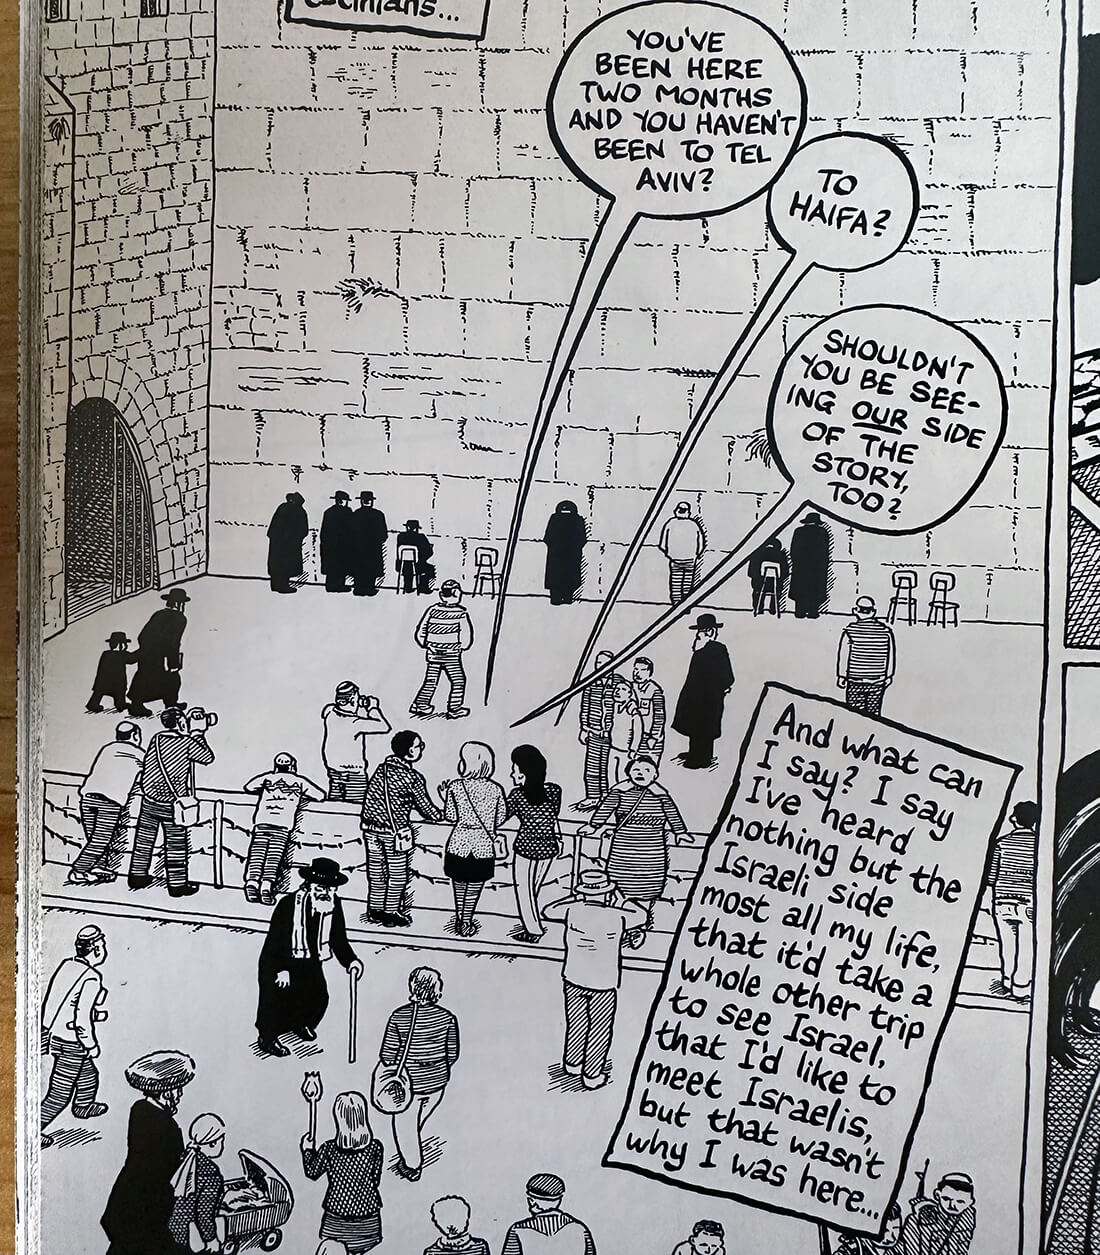 YOU'VE
BEEN HERE
TWO MONTHS
AND YOU HAVEN'T
BEEN TO TEL
AVIV?
TO
HAIFA?
SHOULDN'T
YOU BE SEE-
ING OUR SIDE
OF THE
STORY,
TOO?
And what can
I say? I say
I've heard
nothing but the
Israeli side
most all my life,
that it'd take a
whole other trip
to see Israel,
that I'd like to
meet Israelis,
but that wasn't
why I was here...